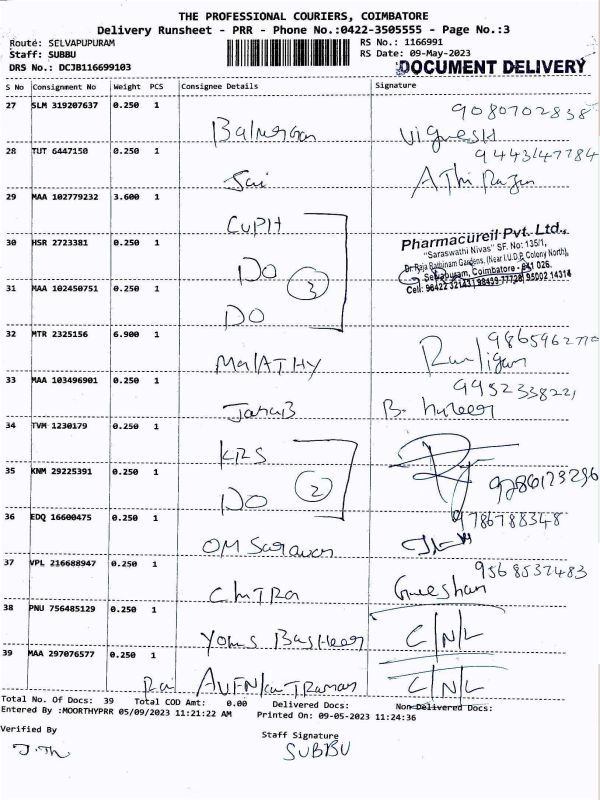 THE PROFESSIONAL COURIERS, COIMBATORE
Delivery Runsheet - PRR - Phone No.:0422-3505555 - Page No.:3
Route: SELVAPUPURAM
RS No.: 1166991
Staff: SUBBU
RS Date: 09-May-2023
DRS No.: DCJB116699103
DOCUMENT DELIVERY
S No Consignment No Weight PCS Consignee Details Signature
27 SLM 319207637 0.250 1
9080702838
Vignesh
28 TUT 6447150 0.250 1
9443147784
Sai
29 MAA 102779232 3.600 1
CUPIT
30 HSR 2723381 0.250 1
Pharmacureil Pvt. Ltd.,
"Saraswathi Nivas" SF. No: 135/1,
Dr. Raja Rathinam Gardens, (Near I.U.D.P. Colony North),
Selvapuram, Coimbatore - 641 026.
DO
3
31 MAA 102450751 0.250 1
DO
32 MTR 2325156 6.900 1
MalATHY
33 MAA 103496901 0.250 1
34 TVM 1230179 0.250 1
KRS
35 KNM 29225391 0.250 1
DO
2
36 EDQ 16600475 0.250 1
9786788348
OM Saravan
37 VPL 216688947 0.250 1
9568537483
ChITRa
38 PNU 756485129 0.250 1
Basheer C/N/L
39 MAA 297076577 0.250 1
C/N/L
Total No. Of Docs: 39 Total COD Amt: 0.00 Delivered Docs: Non Delivered Docs:
Entered By :MOORTHYPRR 05/09/2023 11:21:22 AM Printed On: 09-05-2023 11:24:36
Verified By Staff Signature
SUBBU